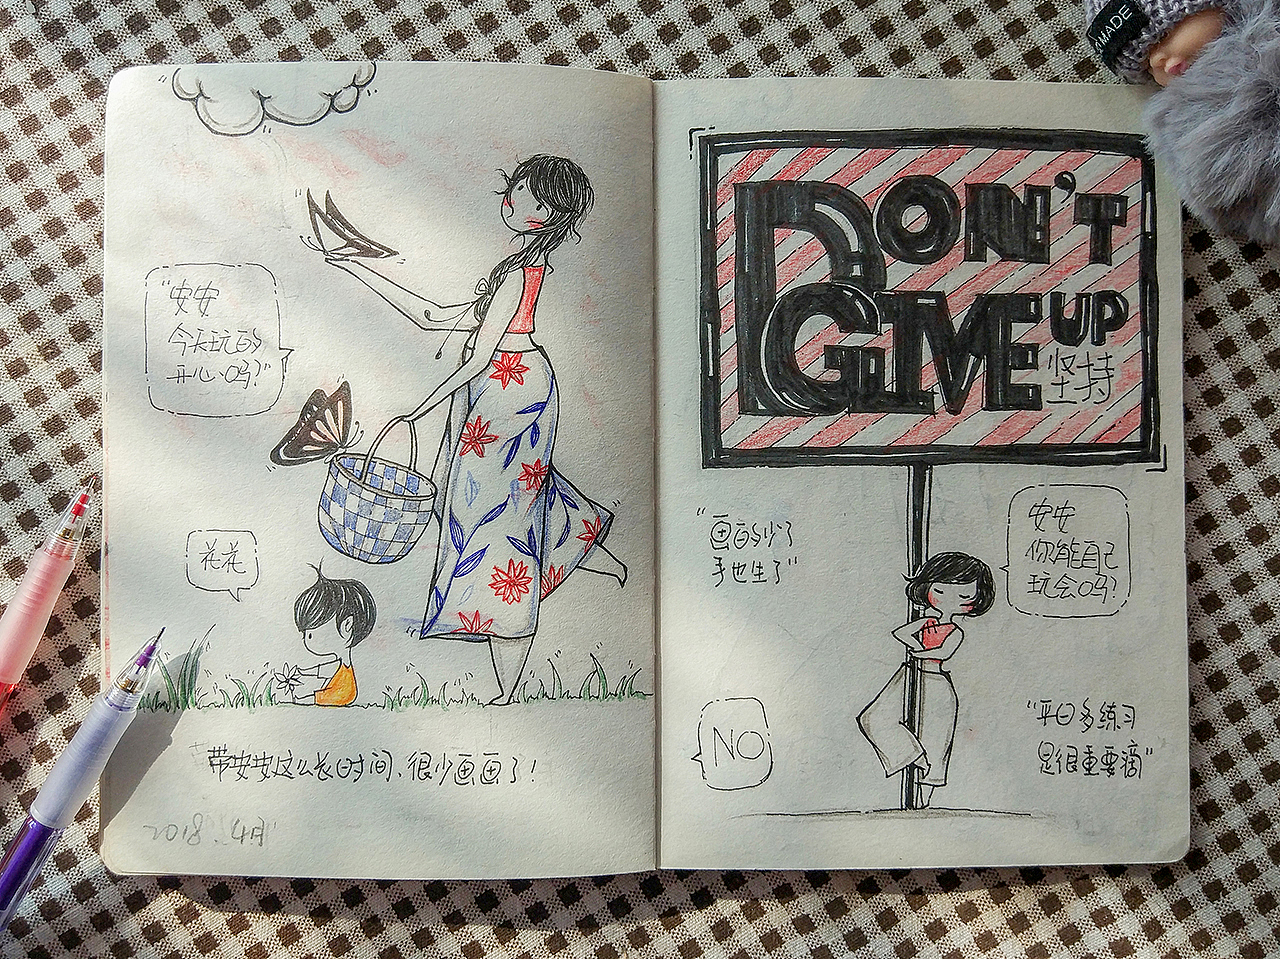 "安安
今天玩的
开心吗?"
花花
带安安这么长时间、很少画画了!
2018.4月
DON'T
GIVE UP
坚持
"画的少了
手也生了"
安安
你能自己
玩会吗?
NO
"平日多练习
是很重要滴"
MADE